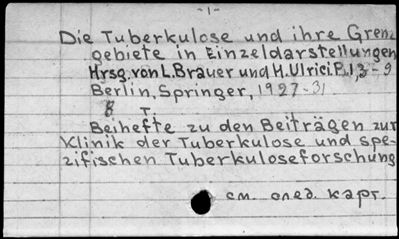 -1-
Die Tuberkulose und ihre Grenz
gebiete in Einzeldarstellungen
Hrsg. von L. Brauer und H. Ulrici. B. 1,3-9
Berlin, Springer, 1927-31
8 T.
Beihefte zu den Beiträgen zur
Klinik der Tuberkulose und spe-
zifischen Tuberkuloseforschung
см. след. карт.